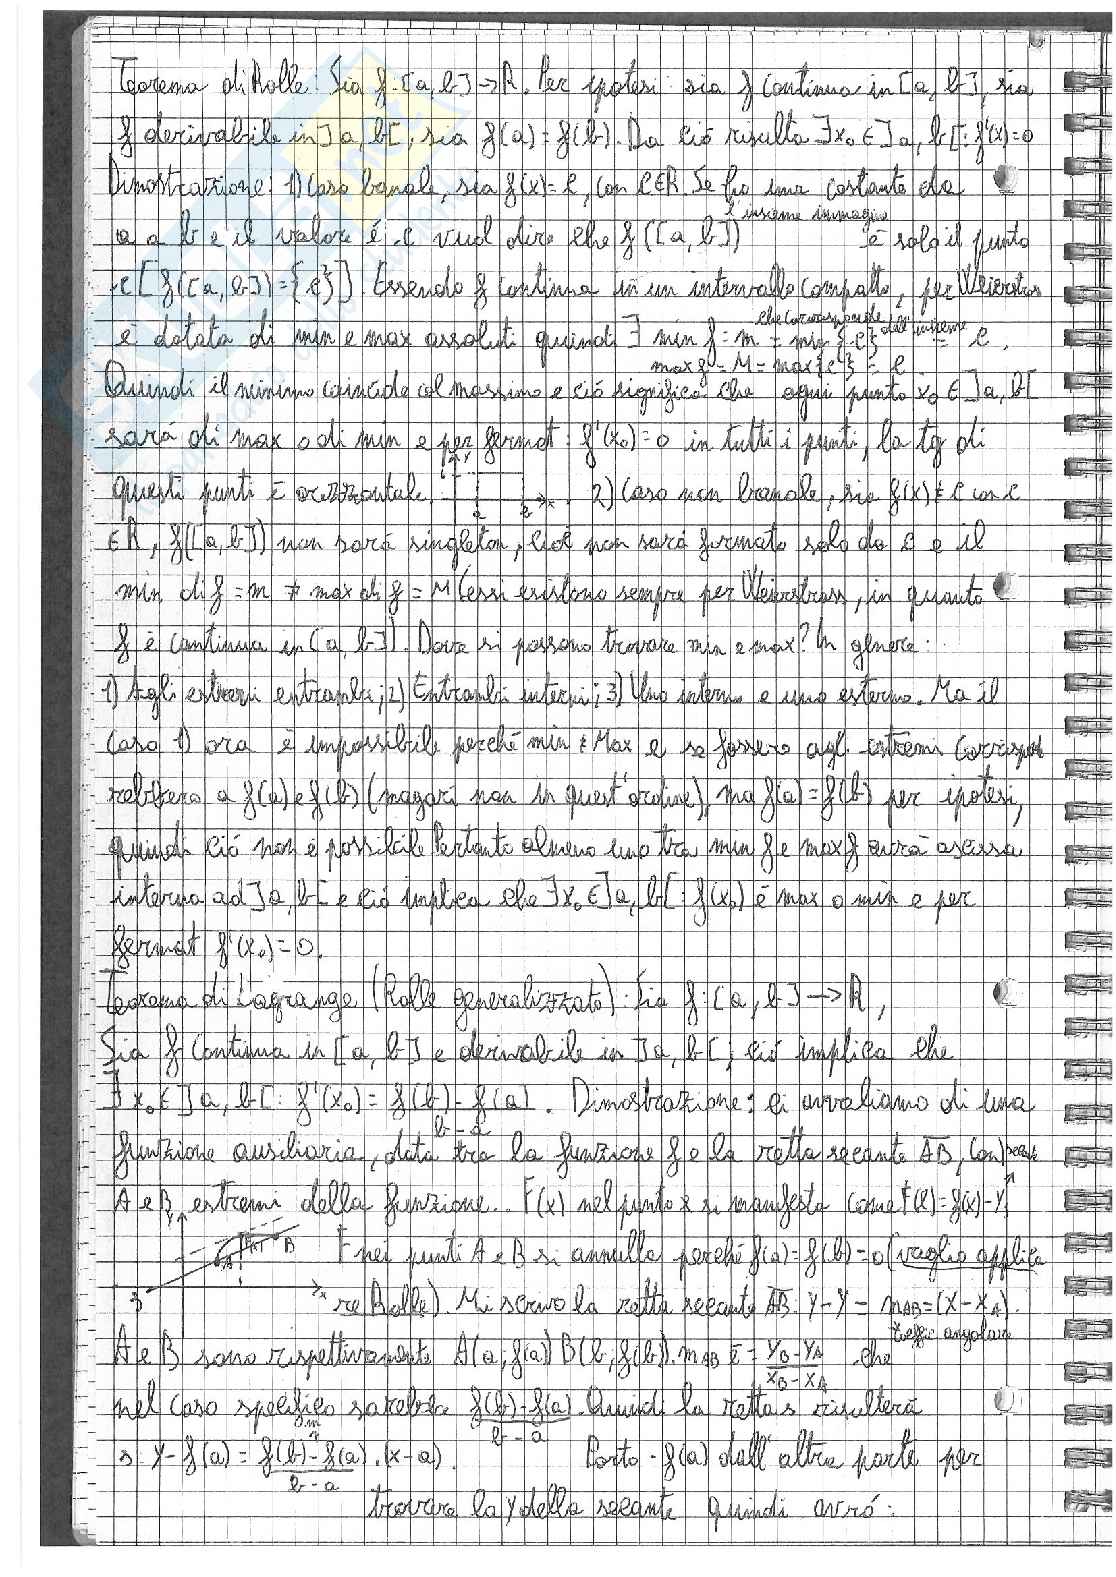 Teorema di Rolle: Sia f:[a,b]→R. Per ipotesi: sia f continua in [a,b], sia
f derivabile in ]a,b[, sia f(a)=f(b). Da ció risulta ∃x₀∈]a,b[: f'(x)=0
Dimostrazione: 1) Caso banale, sia f(x)=c, con c∈R. Se ho una costante da
a a b e il valore é c vuol dire che f([a,b]) l'insieme immagine é solo il punto
c [f([a,b])={c}]. Essendo f continua in un intervallo compatto, per Weierstrass
é dotata di min e max assoluti quindi ∃ min f=m che corrisponde = min {c} dell'insieme = c.
max f=M=max{c}=c
Quindi il minimo coincide col massimo e ció significa che ogni punto x₀∈]a,b[
sará di max o di min e per fermat: f'(x₀)=0 in tutti i punti, la tg di
questi punti é orizzontale y c a b x. 2) Caso non banale, sia f(x)≠c con c
∈R, f([a,b]) non sará singleton, cioé non sará formato solo da c e il
min di f=m ≠ max di f=M (essi esistono sempre per Weierstrass, in quanto
f é continua in [a,b]). Dove si possono trovare min e max? In genere:
1) Agli estremi entrambi; 2) Entrambi interni; 3) Uno interno e uno esterno. Ma il
caso 1) ora é impossibile perché min≠Max e se fossero agli estremi corrispond
rebbero a f(a) e f(b) (magari non in quest'ordine), ma f(a)=f(b) per ipotesi,
quindi ció non é possibile. Pertanto almeno uno tra min f e max f avrá ascissa
interna ad ]a,b[ e ció implica che ∃x₀∈]a,b[: f(x₀) é max o min e per
fermat f'(x₀)=0.
Teorema di Lagrange (Rolle generalizzato): Sia f:[a,b]→R,
Sia f continua in [a,b] e derivabile in ]a,b[, ció implica che
∃x₀∈]a,b[: f'(x₀)= f(b)-f(a) / b-a. Dimostrazione: ci avvaliamo di una
funzione ausiliaria, data tra la funzione f e la retta secante AB, con
A e B estremi della funzione. F(x) nel punto si manifesta come =f(x)-y
y A B x F nei punti A e B si annulla perché f(a)=f(b)=0 (voglio applica
re Rolle). Mi scrivo la retta secante AB: y-y = m_AB=(x-x_A).
coeffic angolare
A e B sono rispettivamente A(a;f(a)) B(b;f(b)). m_AB é = y_B-y_A / x_B-x_A che
nel caso specifico sarebbe f(b)-f(a) / b-a. Quindi la retta s risulterá
s: y-f(a)= f(b)-f(a) / b-a ·(x-a). Porto -f(a) dall'altra parte per
trovare la y della secante quindi avró: